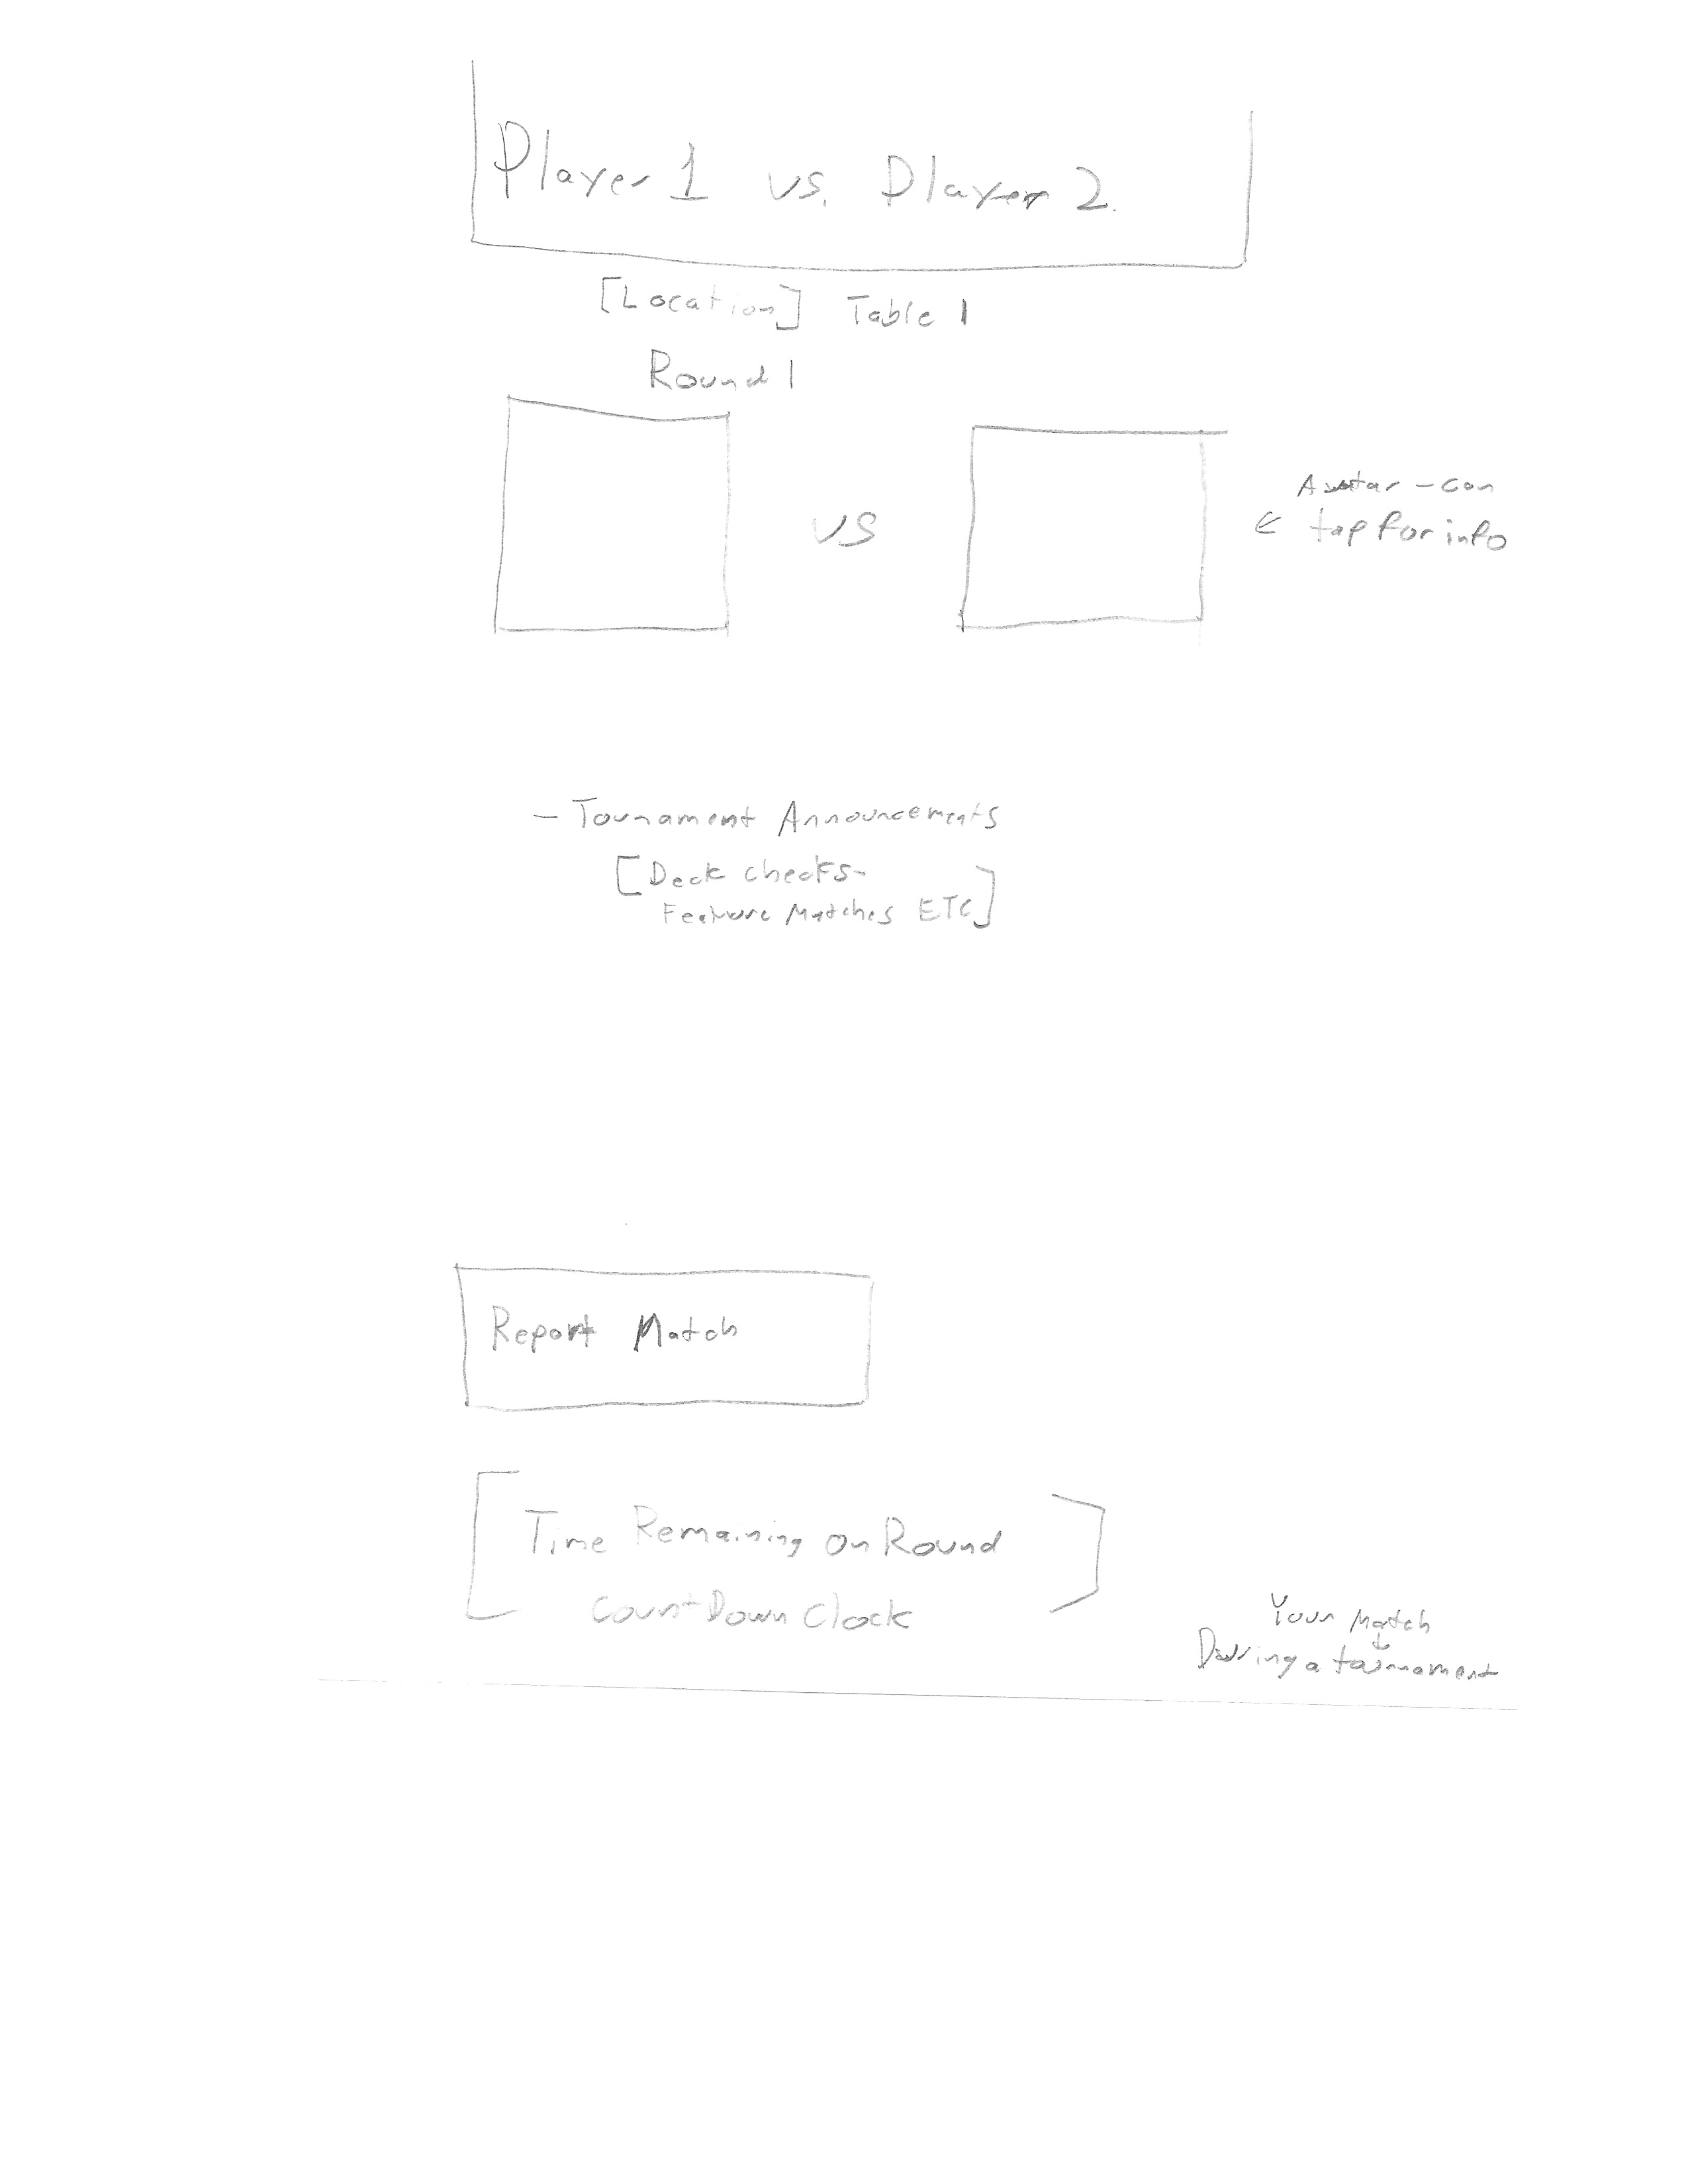 Player 1 vs. Player 2.
[Location] Table 1
Round 1
vs
Avatar - can
← tap for info
- Tournament Announcements
[Deck checks-
Feature Matches ETC]
Report Match
[Time Remaining on Round
CountDown Clock]
Your Match
During a tournament